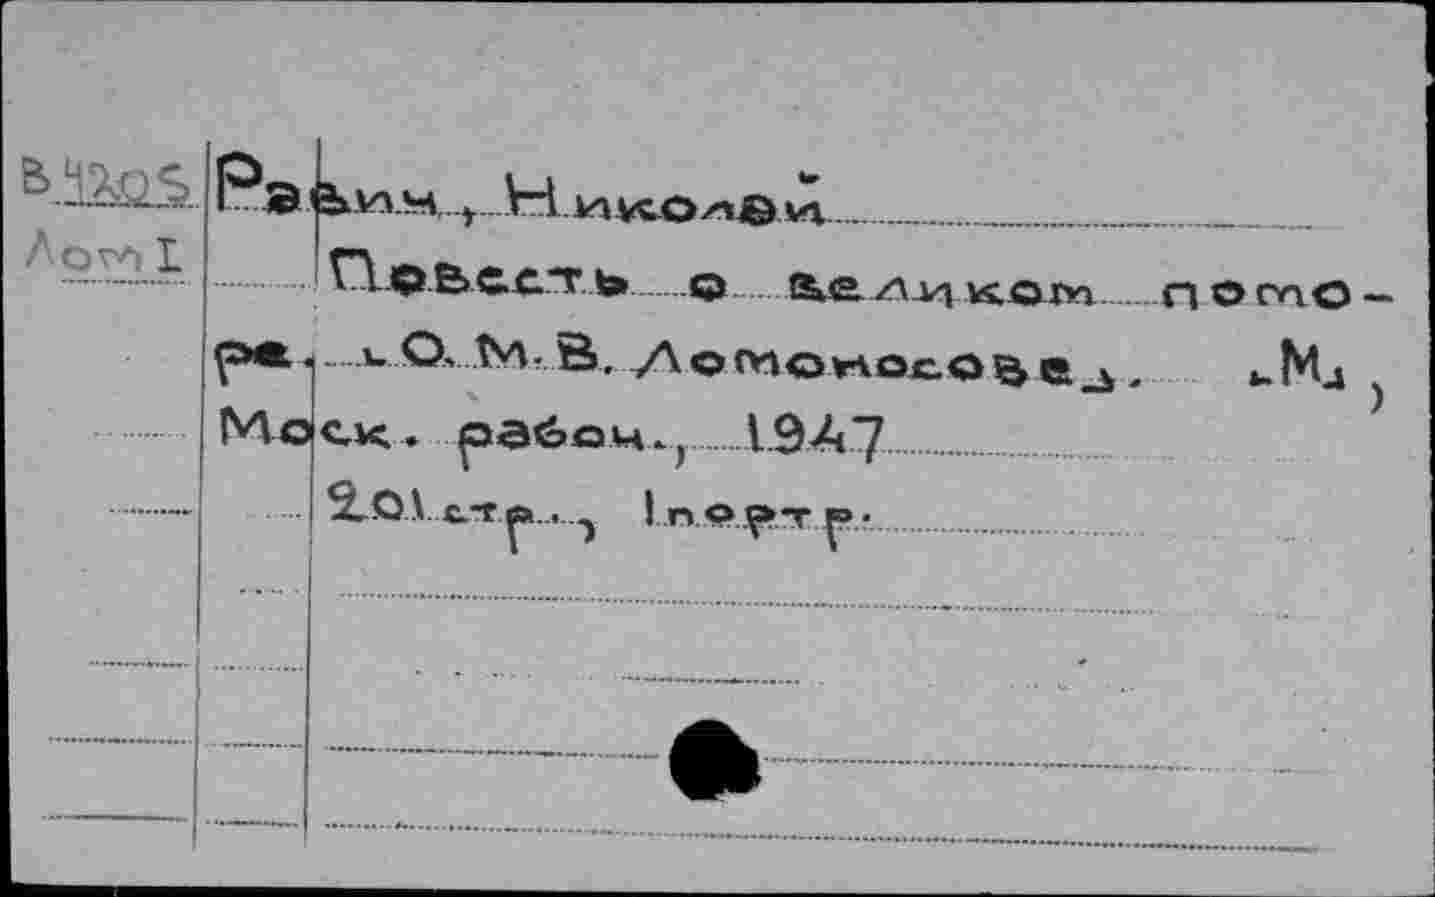 В424205 Равин, Николай
Лом I Повесть о великом помо-
ре. [О. М. В. Ломоносове]. [М.],
Моск. рабоч., 1947
201 стр., 1 портр.